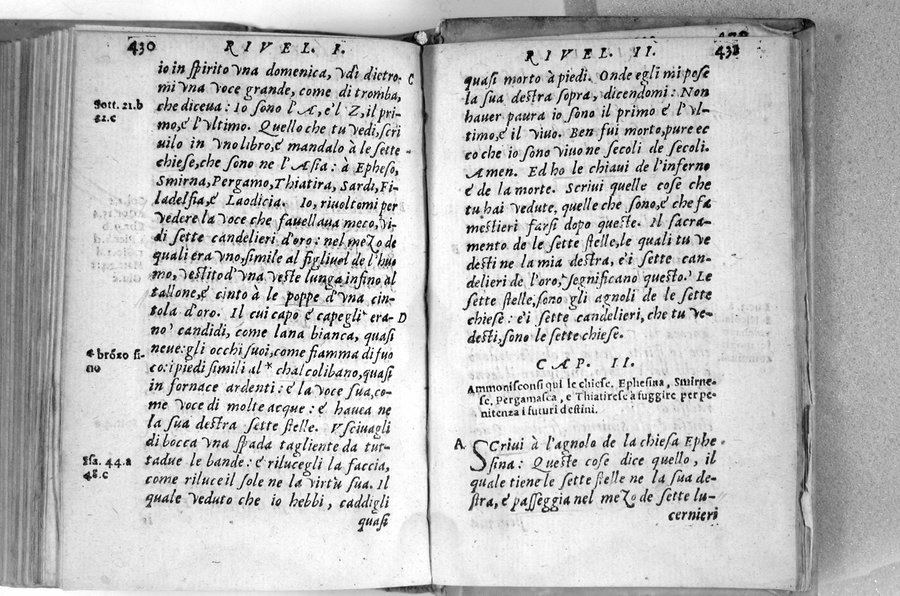 430
RIVEL. I.
io in spirito vna domenica, vdi dietro- C
mi vna voce grande, come di tromba,
Sott. 21.b che diceua: Io sono l'A, e'l Z, il pri-
22.c mo, e l'vltimo. Quello che tu vedi, scri
uilo in vno libro, e mandalo à le sette
chiese, che sono ne l'Asia: à Epheso,
Smirna, Pergamo, Thiatira, Sardi, Fi-
ladelfia, e Laodicia. Io, riuoltomi per
vedere la voce che fauellaua meco, vi-
di sette candelieri d'oro: nel mezo de
quali era vno, simile al figliuol de l'huo
mo, vestito d'vna veste lunga infino al
tallone, e cinto à le poppe d'vna cin-
tola d'oro. Il cui capo e capegli era- D
no candidi, come lana bianca, quasi
* brózo fi- neue: gli occhi suoi, come fiamma di fuo
no co: i piedi simili al * chalcolibano, quasi
in fornace ardenti: e la voce sua, co-
me voce di molte acque: e hauea ne
la sua destra sette stelle. Vsciuagli
di bocca vna spada tagliente da tut-
Isa. 44.a tadue le bande: e rilucegli la faccia,
48.c come riluce il sole ne la virtù sua. Il
quale veduto che io hebbi, caddigli
quasi
RIVEL. II.
431
quasi morto à piedi. Onde egli mi pose
la sua destra sopra, dicendomi: Non
hauer paura io sono il primo e l'vl-
timo, e il viuo. Ben fui morto, pure ec
co che io sono viuo ne secoli de secoli.
Amen. Ed ho le chiaui de l'inferno
e de la morte. Scriui quelle cose che
tu hai vedute, quelle che sono, e che fa
mestieri farsi dopo queste. Il sacra-
mento de le sette stelle, le quali tu ve
desti ne la mia destra, e'i sette can-
delieri de l'oro, segnificano questo. Le
sette stelle, sono gli agnoli de le sette
chiese: e'i sette candelieri, che tu ve-
desti, sono le sette chiese.
CAP. II.
Ammonisconsi qui le chiese, Ephesina, Smirne-
se, Pergamasca, e Thiatirese à fuggire per pe-
nitenza i futuri destini.
A. SCriui à l'agnolo de la chiesa Ephe
sina: Queste cose dice quello, il
quale tiene le sette stelle ne la sua de-
stra, e passeggia nel mezo de sette lu-
cernieri